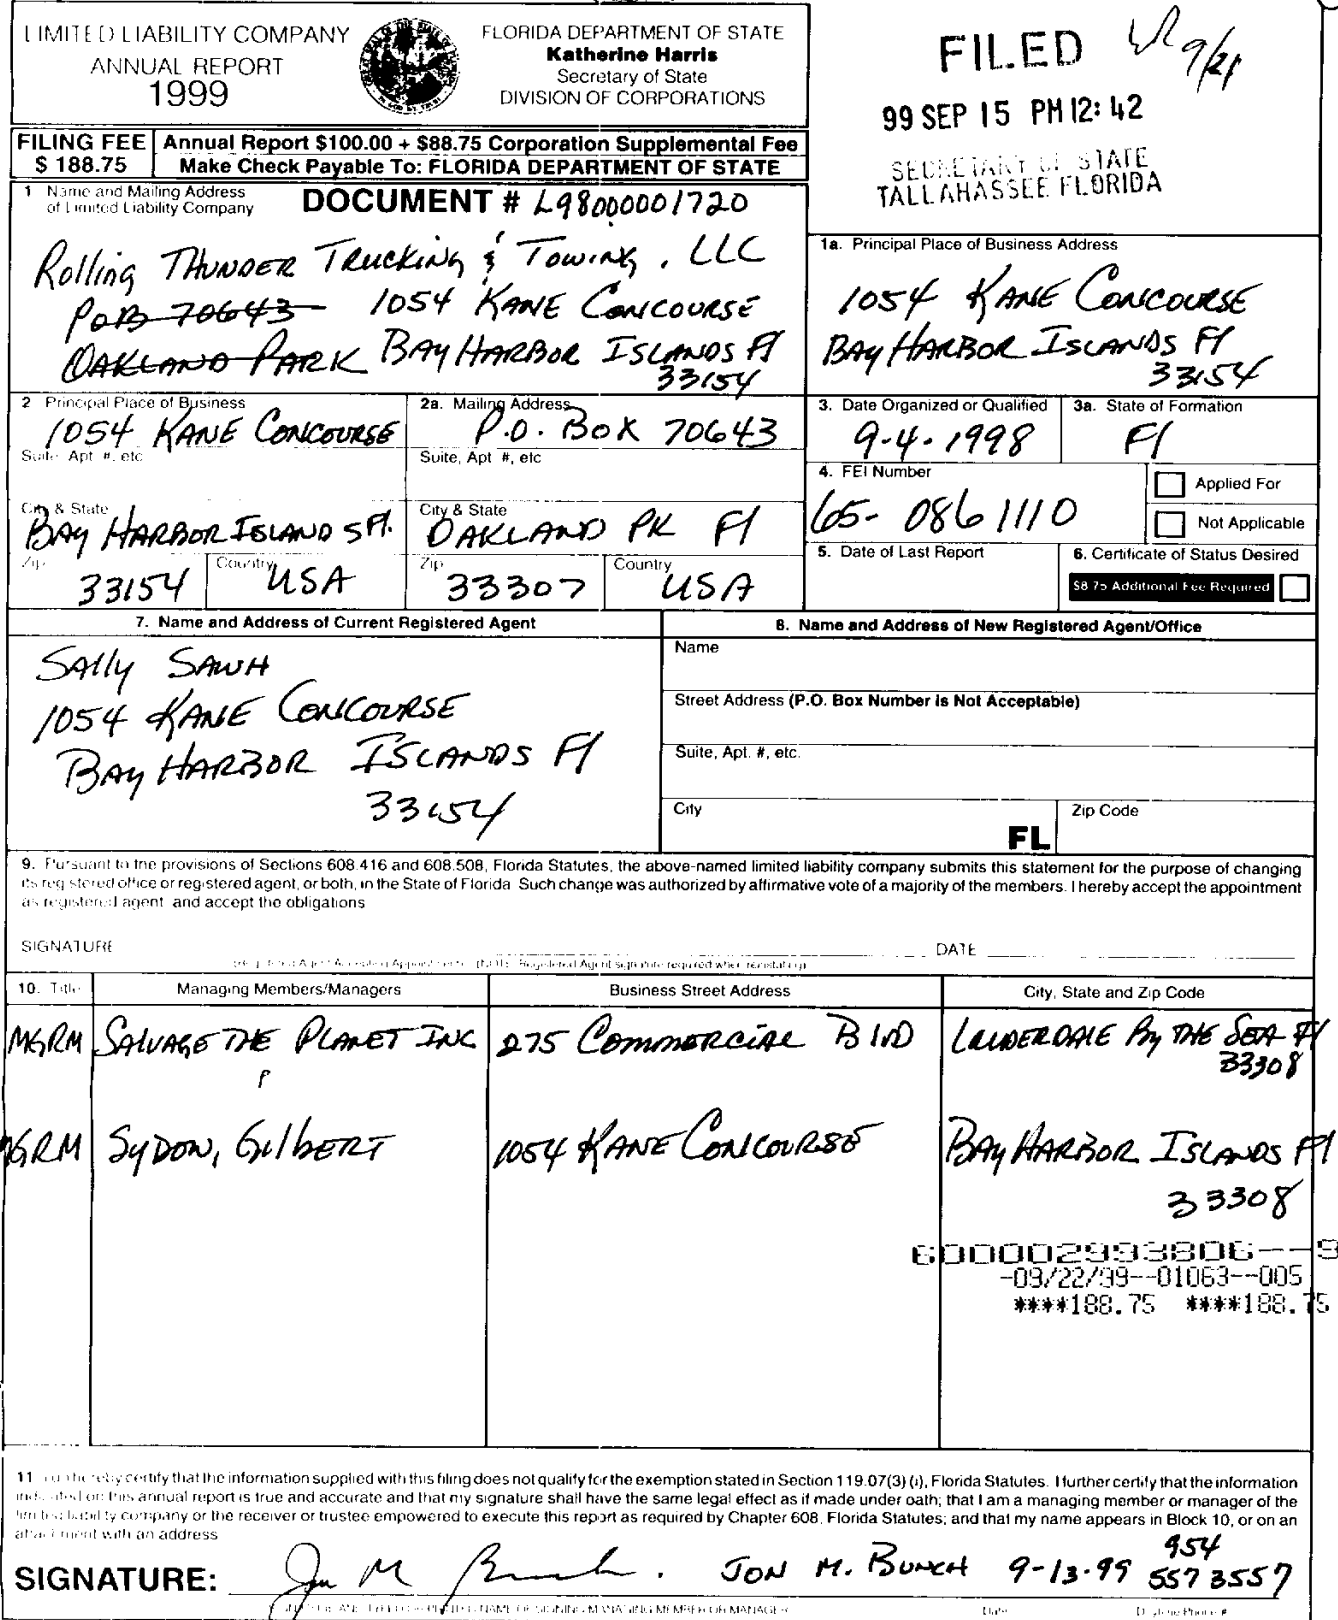 LIMITED LIABILITY COMPANY
ANNUAL REPORT
1999
FLORIDA DEPARTMENT OF STATE
Katherine Harris
Secretary of State
DIVISION OF CORPORATIONS
FILED
9/21
99 SEP 15 PM 12: 42
SECRETARY OF STATE
TALLAHASSEE FLORIDA
FILING FEE
$ 188.75
Annual Report $100.00 + $88.75 Corporation Supplemental Fee
Make Check Payable To: FLORIDA DEPARTMENT OF STATE
1 Name and Mailing Address
of Limited Liability Company
DOCUMENT # L98000001720
Rolling THUNDER TRUCKING & TOWING, LLC
POB 70643 1054 KANE CONCOURSE
OAKLAND PARK BAY HARBOR ISLANDS Fl
33154
1a. Principal Place of Business Address
1054 KANE CONCOURSE
BAY HARBOR ISLANDS Fl
33154
2 Principal Place of Business
1054 KANE CONCOURSE
Suite Apt #, etc
City & State
BAY HARBOR ISLANDS Fl.
Zip
33154
Country
USA
2a. Mailing Address
P.O. BOX 70643
Suite, Apt #, etc
City & State
OAKLAND PK Fl
Zip
33307
Country
USA
3. Date Organized or Qualified
9-4-1998
3a. State of Formation
Fl
4. FEI Number
65-0861110
Applied For
Not Applicable
5. Date of Last Report
6. Certificate of Status Desired
$8.75 Additional Fee Required
7. Name and Address of Current Registered Agent
SAlly SAWH
1054 KANE CONCOURSE
BAY HARBOR ISLANDS Fl
33154
8. Name and Address of New Registered Agent/Office
Name
Street Address (P.O. Box Number is Not Acceptable)
Suite, Apt. #, etc.
City
FL
Zip Code
9. Pursuant to the provisions of Sections 608.416 and 608.508, Florida Statutes, the above-named limited liability company submits this statement for the purpose of changing
its registered office or registered agent, or both, in the State of Florida Such change was authorized by affirmative vote of a majority of the members. I hereby accept the appointment
as registered agent and accept the obligations
SIGNATURE
DATE
(Registered Agent Accepting Appointment) (NOTE: Registered Agent signature required when reinstating)
10. Title
Managing Members/Managers
Business Street Address
City, State and Zip Code
MGRM SALVAGE THE PLANET INC 275 COMMERCIAL Blvd LAUDERDALE By THE SEA Fl
33308
MGRM SYDON, GilbERT 1054 KANE CONCOURSE BAY HARBOR ISLANDS Fl
33308
6000002993806--9
-09/22/99--01063--005
****188.75 ****188.75
11 I do hereby certify that the information supplied with this filing does not qualify for the exemption stated in Section 119.07(3)(i), Florida Statutes. I further certify that the information
indicated on this annual report is true and accurate and that my signature shall have the same legal effect as if made under oath; that I am a managing member or manager of the
limited liability company or the receiver or trustee empowered to execute this report as required by Chapter 608, Florida Statutes; and that my name appears in Block 10, or on an
attachment with an address
SIGNATURE: Jon M Bunch. JON M. BUNCH 9-13-99 954
557 3557
SIGNATURE AND TYPED OR PRINTED NAME OF SIGNING MANAGING MEMBER OR MANAGER
Date
Daytime Phone #